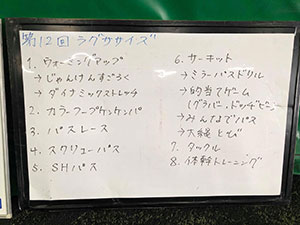 第12回 ラグササイズ
1. ウォーミングアップ
→じゃんけんすごろく
→ダイナミックストレッチ
2. カラーフープケンケンパ
3. パスレース
4. スクリューパス
5. SHパス
6. サーキット
→ミラーパスドリル
→的当てゲーム
(グラバー、ドッヂビー)
→みんなでパス
→大縄とび
7. タックル
8. 体幹トレーニング